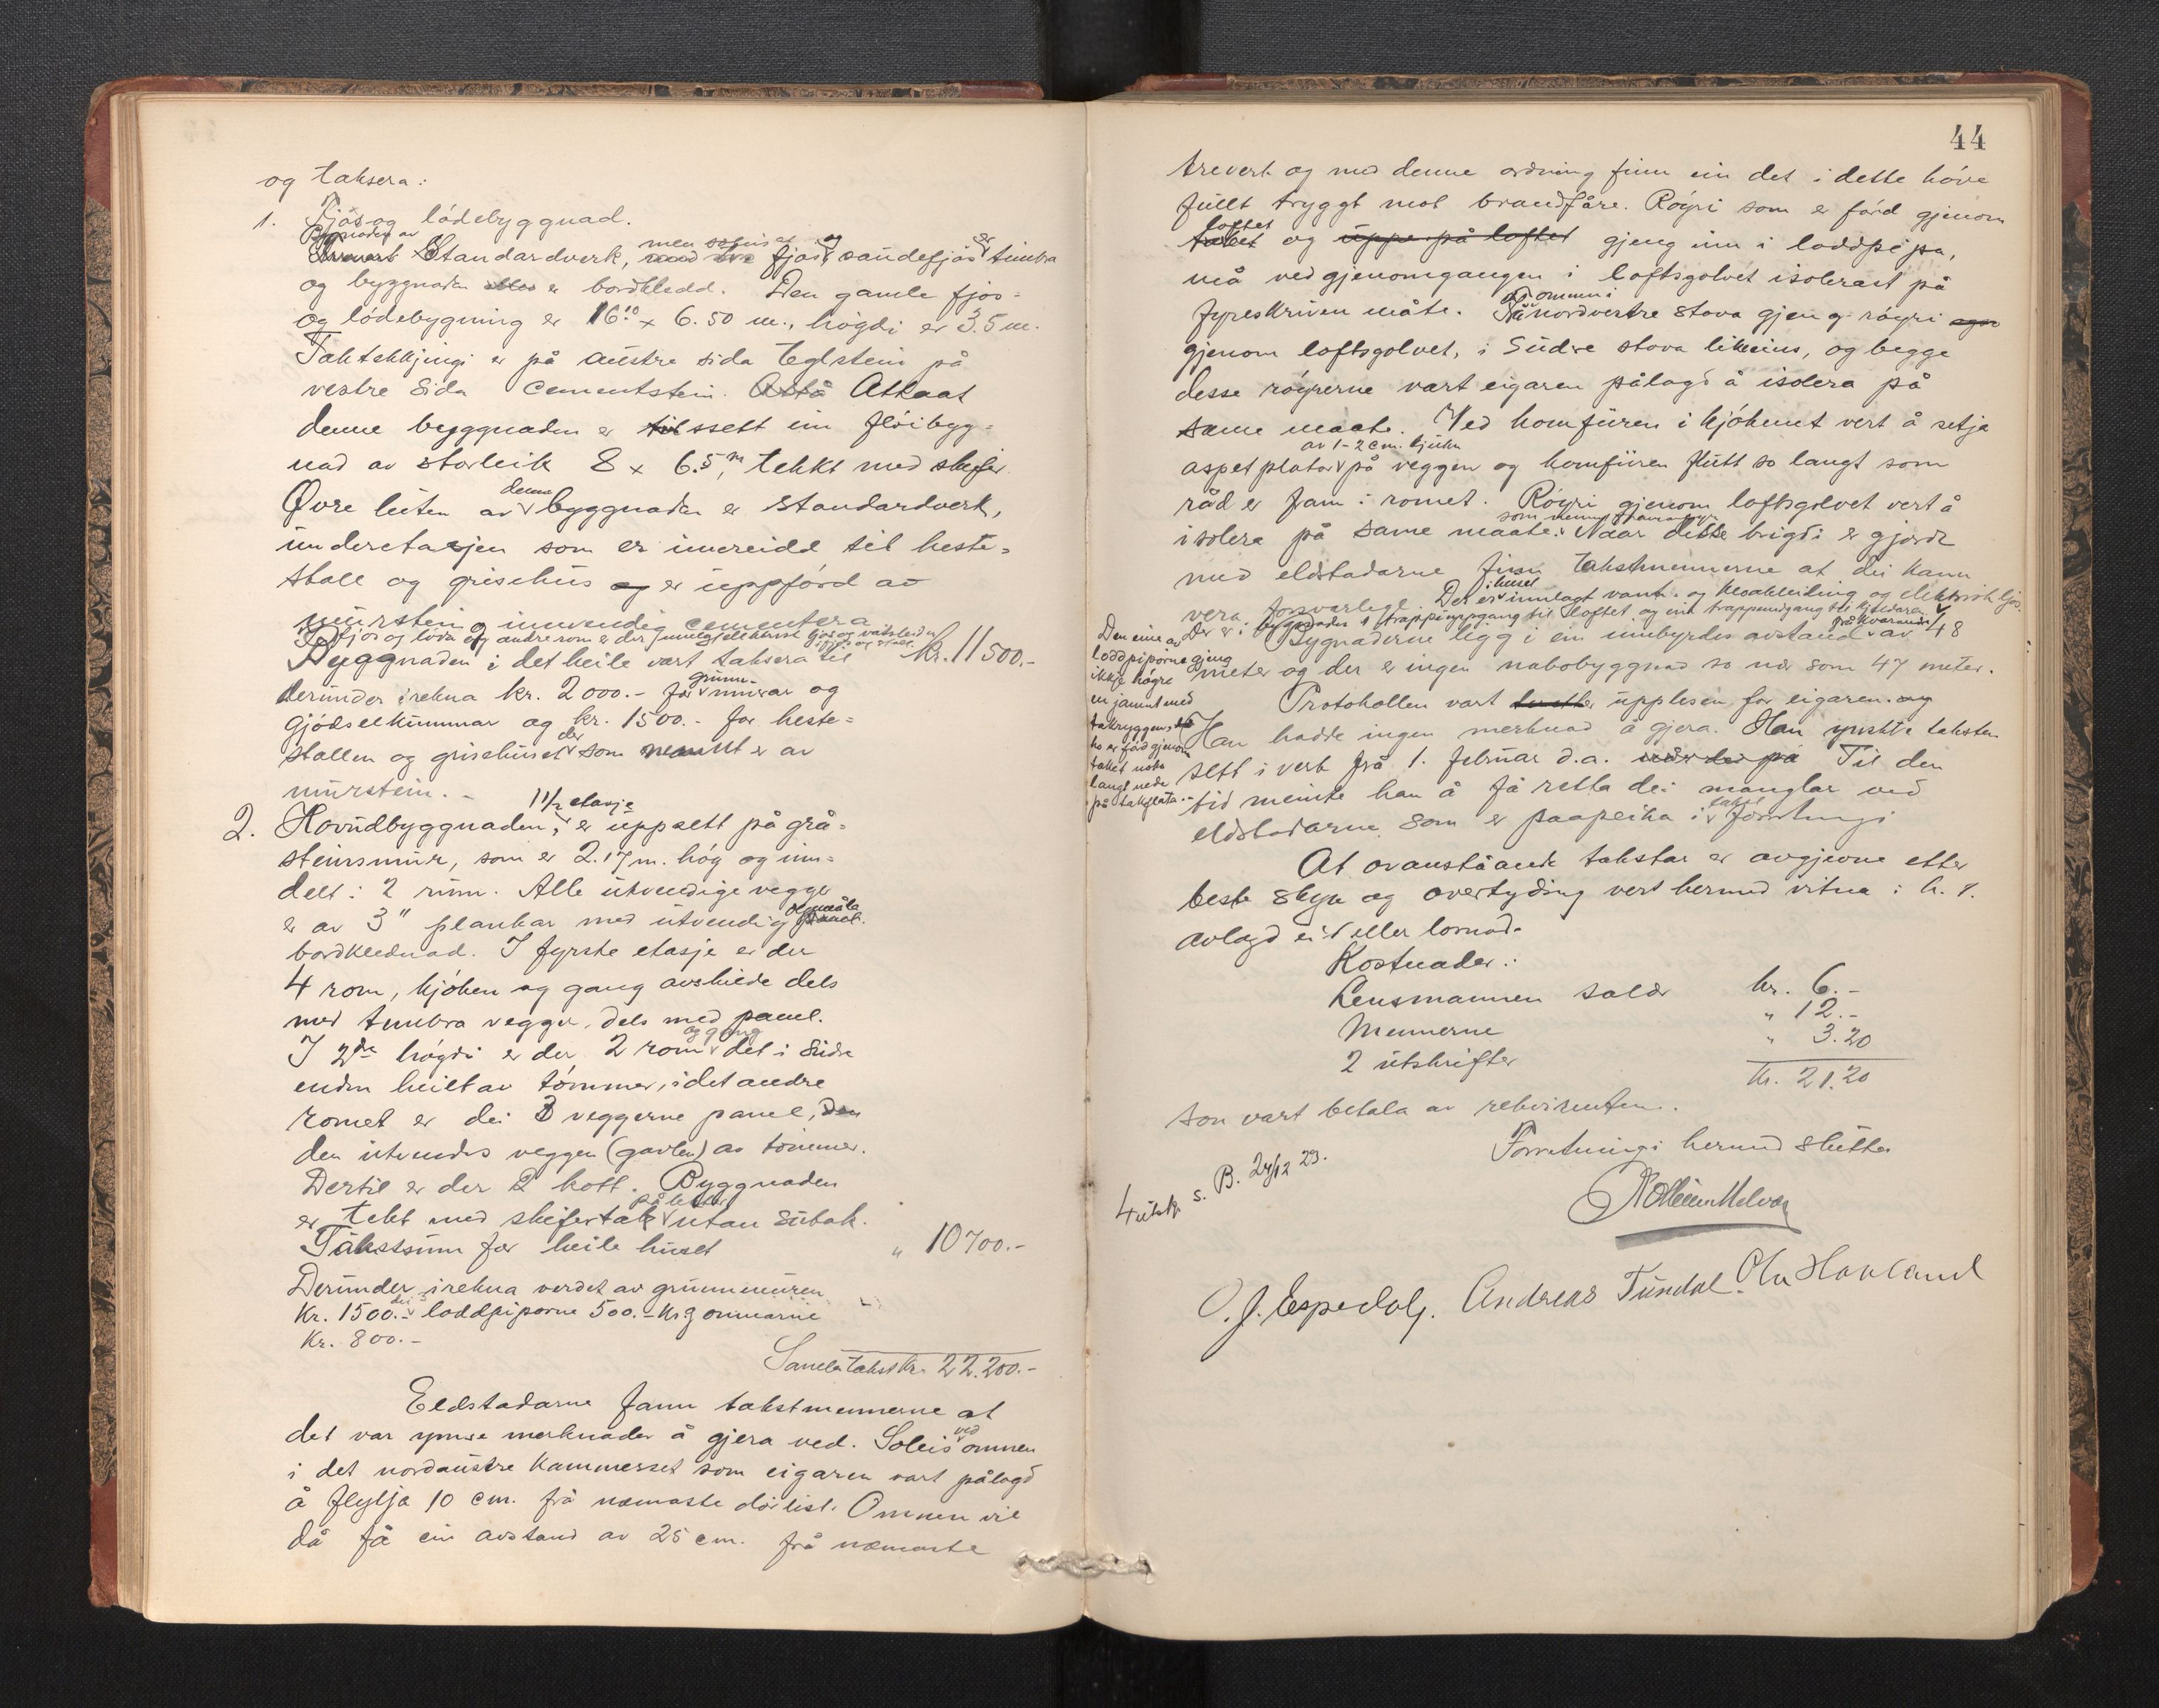 og taksera:
1. Fjøs og lødebyggnad.
Bygnaden av
Standardverk, men fjøs og saudefjøs er timbra
og byggnaden er bordkledd. Den gamle fjøs-
og lødebygning er 16.10 x 6.50 m., høgdi er 3.5 m.
Taktekkjingi er på austre sida teglstein på
vestre sida cementstein. Attaat
denne byggnaden er tilsett ein fløibygg-
nad av storleik 8 x 6.5 m, tekkt med skifer.
Øvre luten av denne byggnaden er standardverk,
underetasjen som er innreidd til heste-
stall og grisehus er uppførd av
murstein og innvendig cementera
I fjøs og løda og andre som er der innlagt elektrisk ljos og vatsleidn
i fjøs og stall.
Byggnaden i det heile vart taksera til kr. 11500.-
derunder irekna kr. 2000.- for grunn-murar og
gjødselkummar og kr. 1500.- for heste-
stallen og grisehuset der som nemnt er av
murstein. -
2. Hovudbyggnaden, 1 1/2 etasje er uppsett på grå-
steinsmur, som er 2.17 m. høg og inn-
delt i 2 rum. Alle utvendige vegger
er av 3" plankar med utvendig og måla
bordklednad. I fyrste etasje er der
4 rom, kjøken og gang avskilde dels
med timbra vegger, dels med panel.
I 2dre høgdi er der 2 rom og gang det i sudre
enden heilt av tømmer, i det andre
romet er dei 3 veggerne panel,
den utvendes veggen (gavlen) av tømmer.
Dertil er der 2 kott. Byggnaden
er tekt med skifertak på lekter utan sutak.
Takstsum for heile huset " 10700.-
Derunder irekna verdet av grunnmuren
Kr. 1500.- dei 2 loddpiporne 500.- Kr. og omnarne
Kr. 800.-
Samla takst kr. 22.200.-
Eldstadarne fann takstmennerne at
det var ymse merknader å gjera ved. Soleis ved omnen
i det nordaustre kammerset som eigaren vart pålagd
å flytja 10 cm. frå næmaste dørlist. Omnen vil
då få ein avstand av 25 cm. frå næmaste
44
treverk og med denne ordning finn ein det i dette høve
fullt trygt mot brandfåre. Røyri som er førd gjenom
loftet og uppe på loftet gjeng inn i loddpipa,
må ved gjenomgangen i loftsgolvet isolerast på
fyreskriven måte. Frå omnen i nordvestre stova gjeng røyri
gjenom loftsgolvet, i sudre stova likeeins, og begge
desse røyrerne vart eigaren pålagd å isolera på
same maate. Ved komfuren i kjøkenet vert å setja
aspetplator av 1-2 cm. tjukn på veggen og komfuren flutt so langt som
råd er fram i romet. Røyri gjenom loftsgolvet vert å
isolera på same maate som nemnt framanfyr. Naar dette brigdi er gjorde
med eldstadarne finn takstmennerne at dei kann
vera forsvarlege. Der er i huset innlagt vatn- og kloakkleiding og elektrisk ljos.
Der er i byggnaden 1 trappuppgang til loftet og ein trappnedgang til kjellaren.
Bygnaderne ligg i ein innbyrdes avstand frå kvarandre av 48
meter og der er ingen nabobyggnad so nær som 47 meter.
Den eine av
loddpiporne gjeng
ikkje høgre
en jamnt med
takryggen,
ho er førd gjenom
taket noko
langt nede
på takflata.-
Protokollen vart upplesen for eigaren.
Han hadde ingen merknad å gjera. Han ynskte taksten
sett i verk frå 1. februar d.a. Til den
tid meinte han å få retta dei manglar ved
eldstadarne som er paapeika i takstforretningi
At ovanståande takstar er avgjevne etter
beste skyn og overtyding vert hermed vitna i h. t.
avlagd eid eller lovnad.
Kostnader:
Lensmannen salær kr. 6.-
Mennerne " 12.-
2 utskrifter " 3.20
kr. 21.20
som vart betala av rekvirenten.
Forretningi hermed slutta
4 utskr. s. B. 24/12 23.
O. J. Espedal. Andreas Tundal. Ola Havland